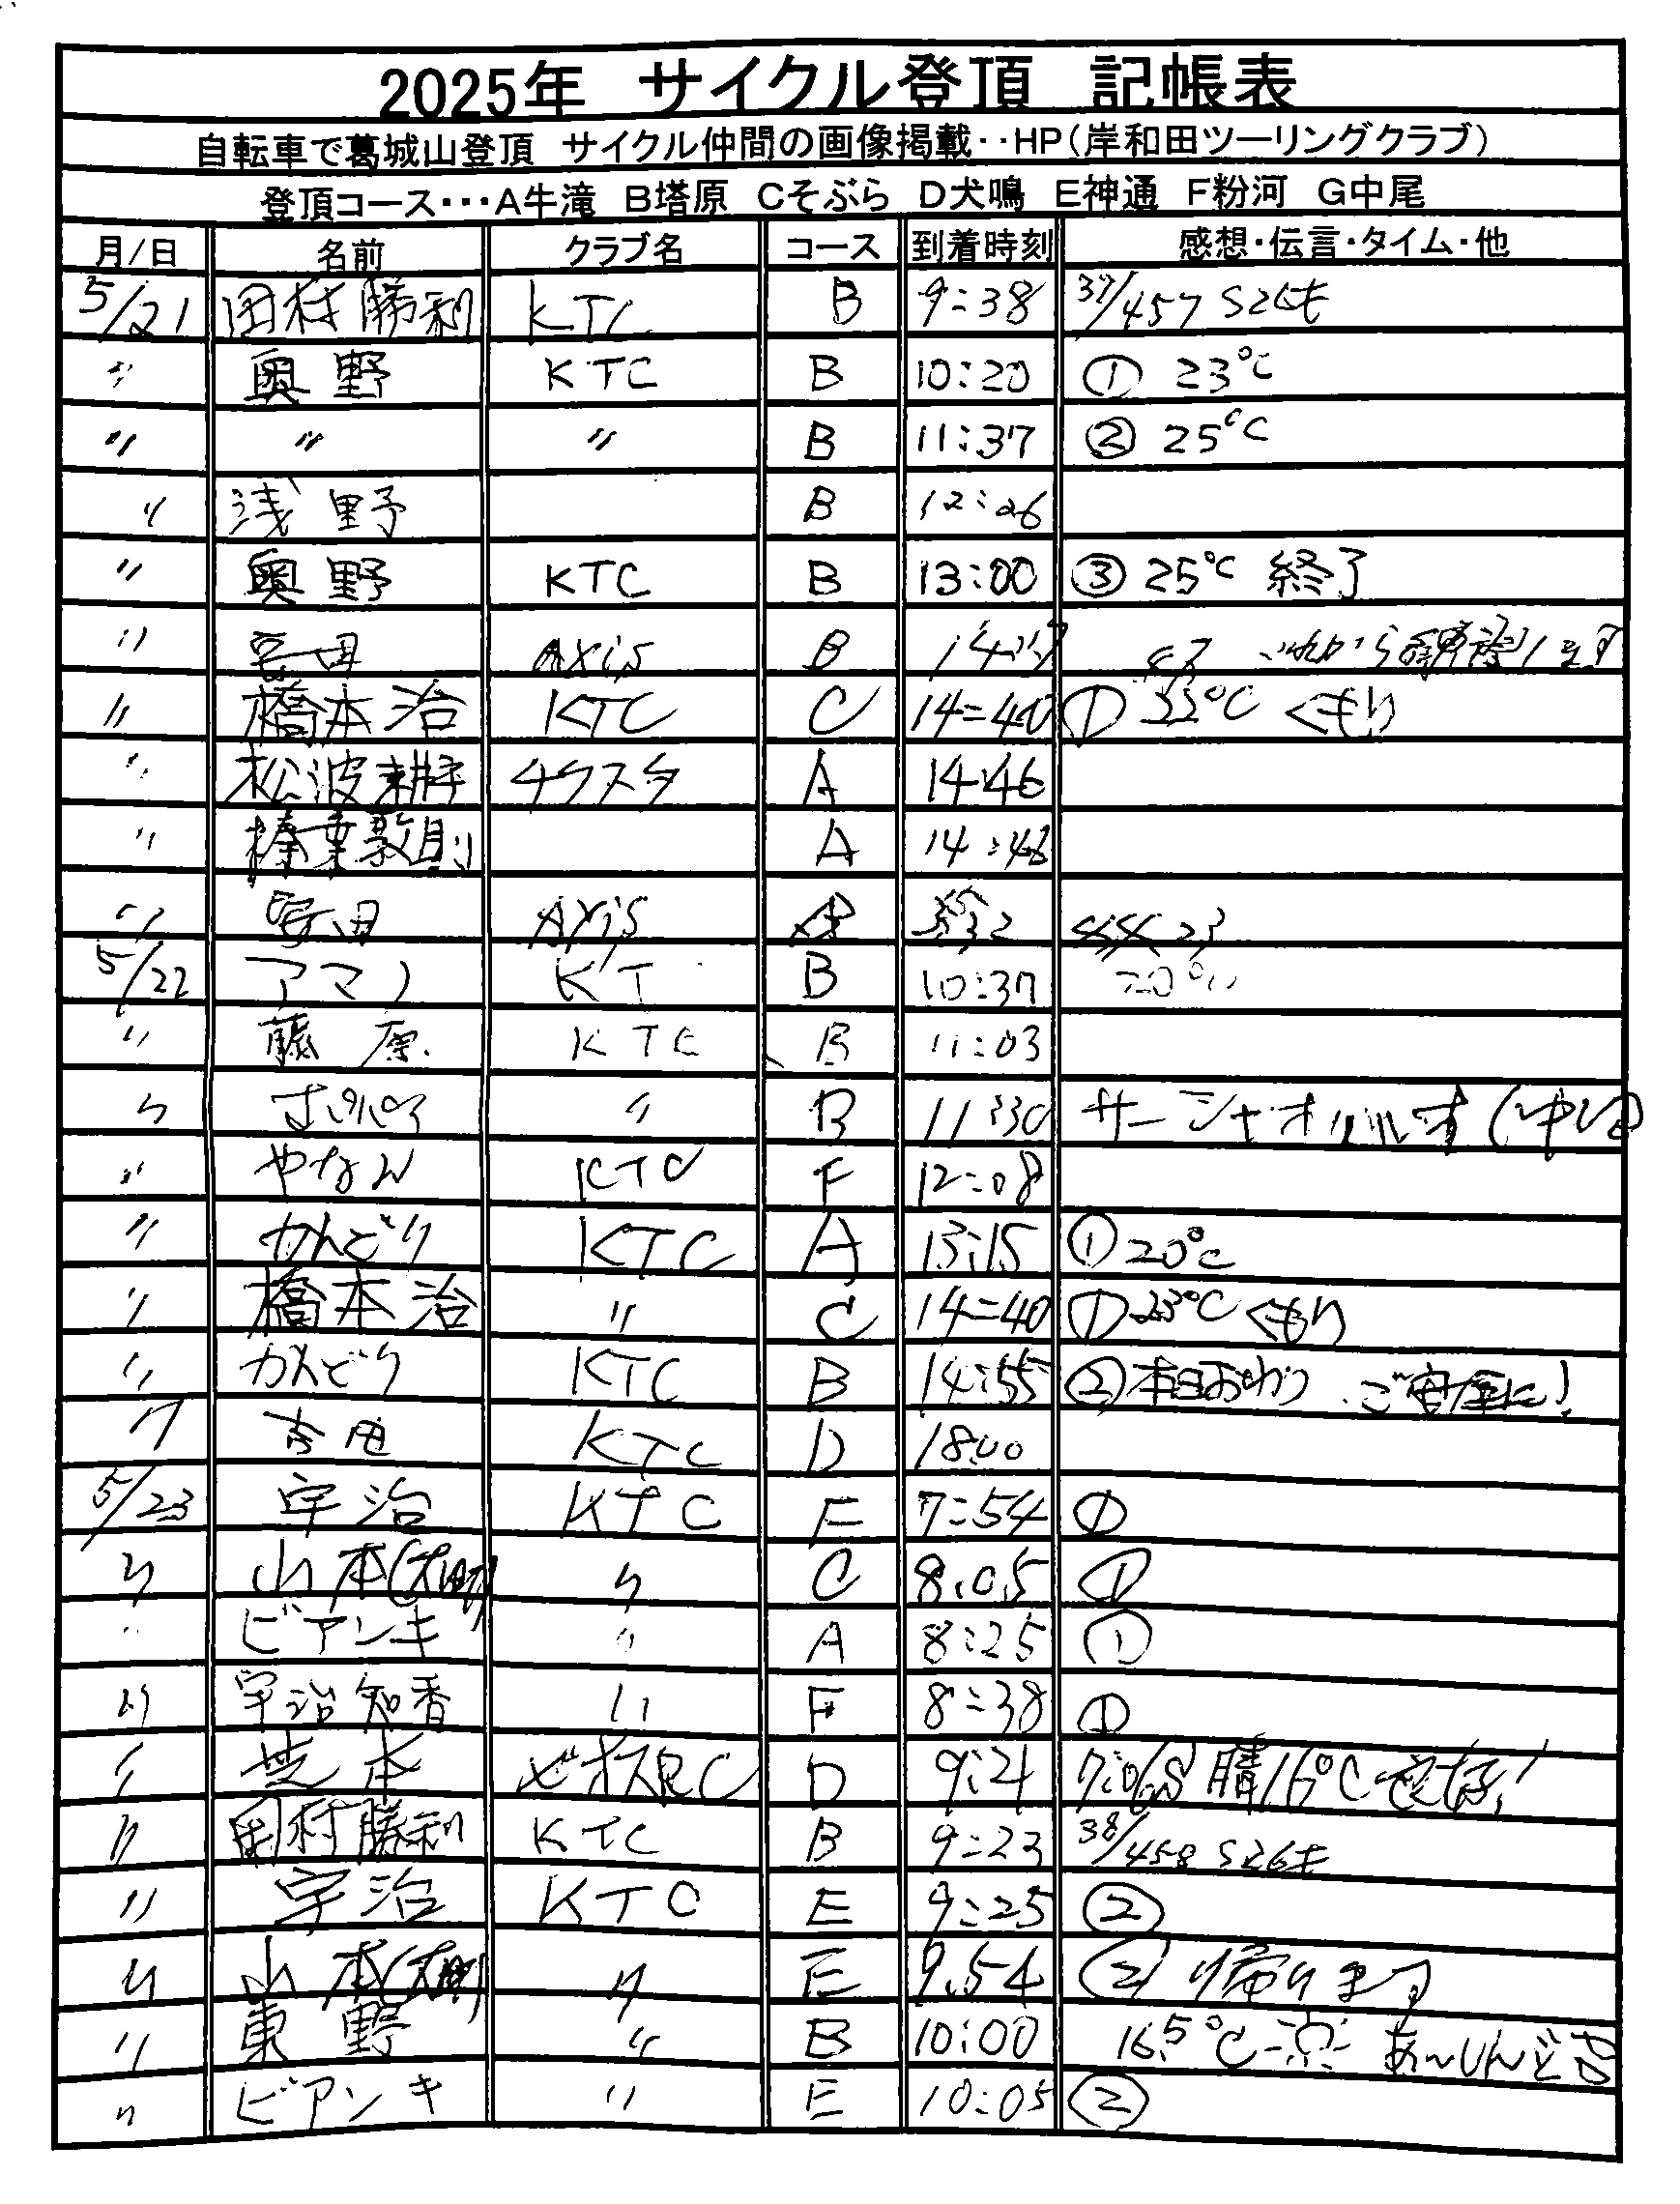 2025年 サイクル登頂 記帳表
自転車で葛城山登頂 サイクル仲間の画像掲載‥HP(岸和田ツーリングクラブ)
登頂コース・・・A牛滝 B塔原 Cそぶら D犬鳴 E神通 F粉河 G中尾
月/日 名前 クラブ名 コース 到着時刻 感想・伝言・タイム・他
5/21 田村勝利 KTC B 9:38 37/457 S26モ
〃 奥野 KTC B 10:20 ① 23℃
〃 〃 〃 B 11:37 ② 25℃
〃 浅野 B 12:26
〃 奥野 KTC B 13:00 ③ 25℃ 終了
〃 Axis B
〃 橋本治 KTC C 14=40 ① 23℃ くもり
〃 松波耕平 ナクスタ A 14:46
〃 榛葉敦則 A 14:48
〃 安田 Axis
5/22 アマノ KT B 10:37 20℃
〃 藤原 KTC B 11:03
〃 〃 B 11:30 サーシャ
〃 やなん KTC F 12:08
〃 かんどり KTC A 13:15 ① 20℃
〃 橋本治 〃 C 14=40 ① 23℃ くもり
〃 かんどり KTC B 14:55 ② 本日おわり ご安全に!
〃 吉田 KTC D 18:00
5/23 宇治 KTC F 7:54 ①
〃 山本 〃 C 8:05 ①
〃 ビアンキ 〃 A 8:25 ①
〃 宇治知香 〃 F 8:38 ①
〃 芝本 D 9:21 晴16℃
〃 田村勝利 KTC B 9:23 38/458 S26モ
〃 宇治 KTC E 9:25 ②
〃 山本 〃 E 9:54 ② 帰ります
〃 東野 〃 B 10:00 16.5℃ あ〜しんど
〃 ビアンキ 〃 E 10:05 ②